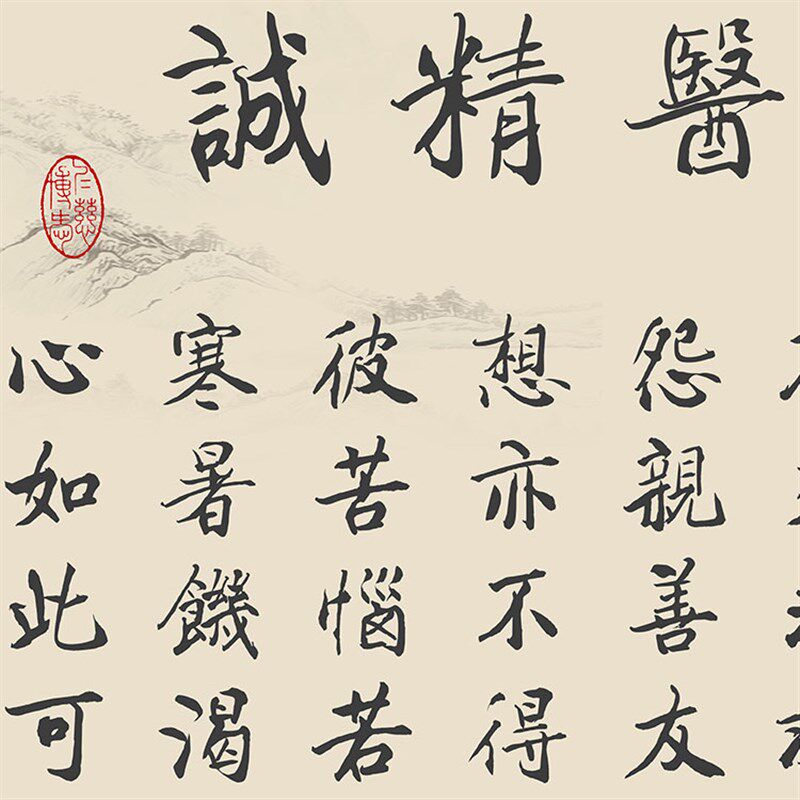 醫精誠
怨親善友
想亦不得
彼苦惱若
寒暑饑渴
心如此可
仁慈